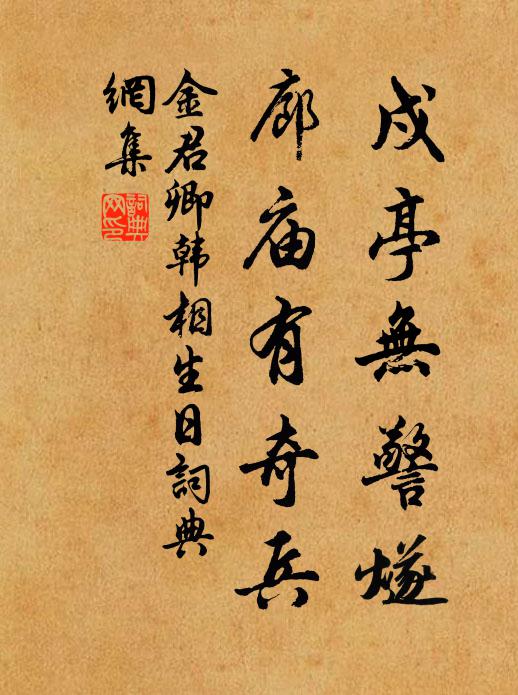 戍亭無警燧
廊庙有奇兵
金君卿韩相生日詞典
網集
詞典
网印